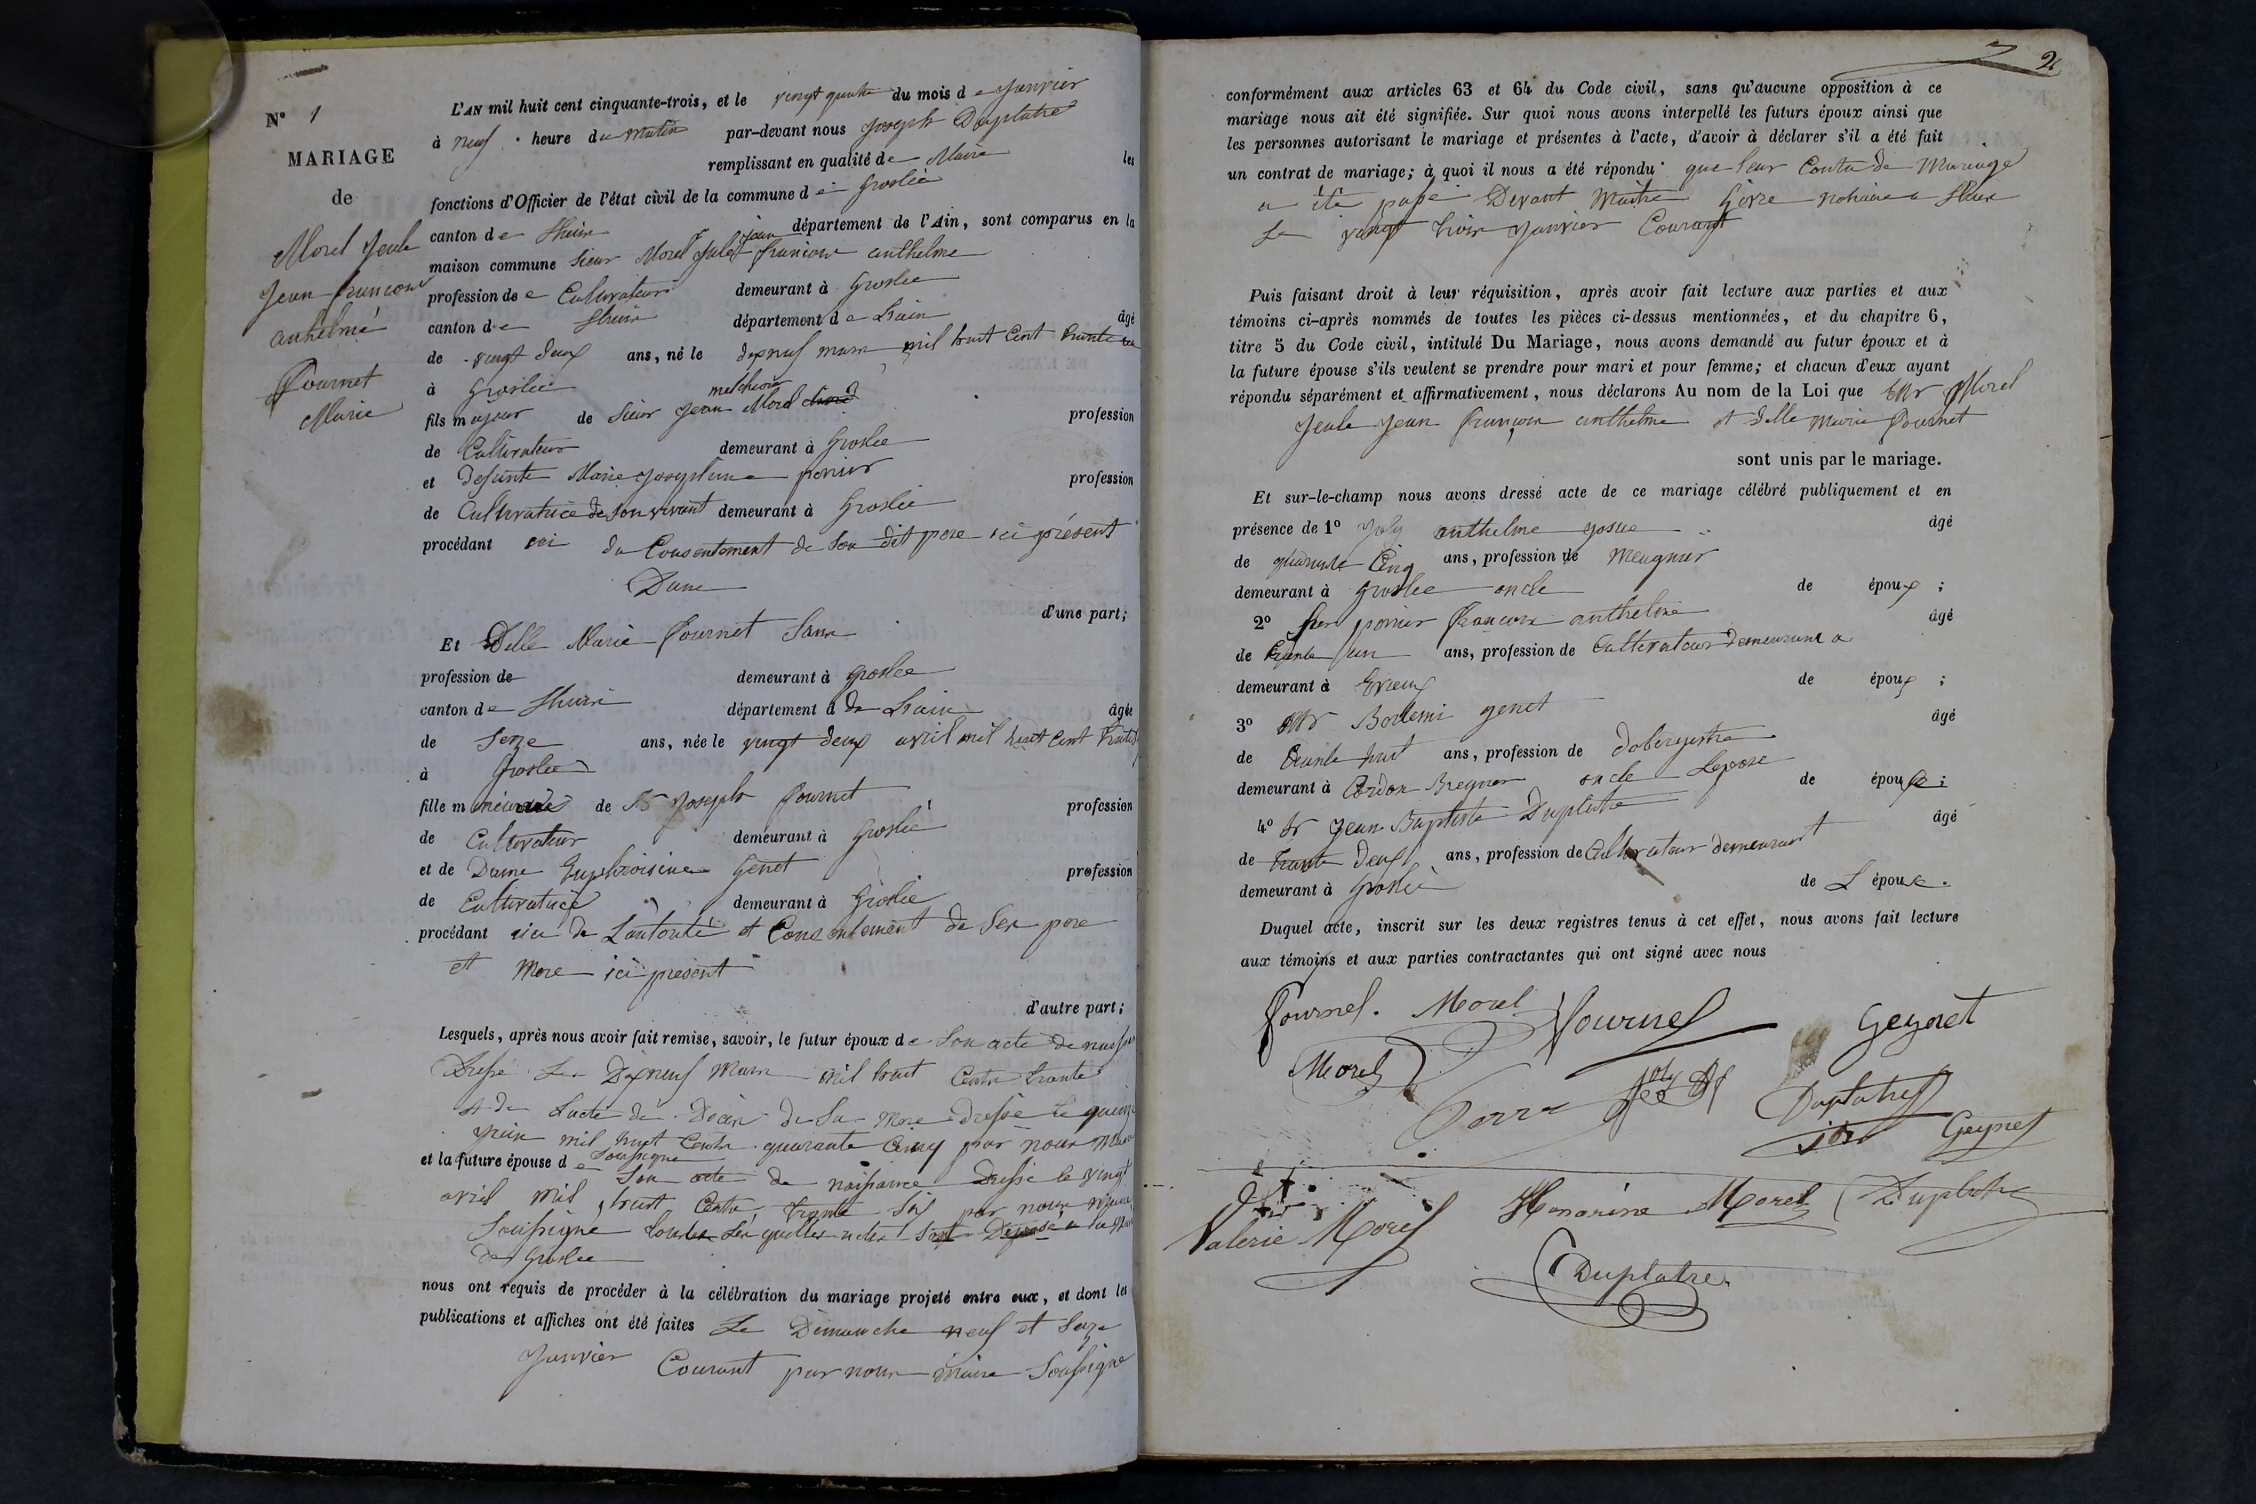 N° 1
MARIAGE
de
Morel Jeule
Jean francois
anthelme
&
Fournet
Marie
L'AN mil huit cent cinquante-trois, et le vingt quatre du mois de Janvier
à neuf heure du matin par-devant nous Joseph Duplatre
remplissant en qualité de Maire les
fonctions d'Officier de l'état civil de la commune de Groslée
canton de Lhuis département de l'Ain, sont comparus en la
jean
maison commune Sieur Morel Jule francois anthelme
profession de Cultivateur demeurant à Groslee
canton de Lhuis département de Lain âgé
de vingt deux ans, né le dixneuf mars mil huit Cent trente
à Groslée
melchior
fils majeur de Sieur Jean Morel profession
de Cultivateur demeurant à Groslee
et defunte Marie Josephine ponier profession
de Cultivatrice de son vivant demeurant à Groslée
procédant ici du Consentement de Son dit pere ici présent
Dune
d'une part;
Et Delle Marie Fournet Sans
profession de demeurant à Groslee
canton de Lhuis département de Lain âgée
de Seize ans, née le vingt deux avril mil huit Cent trente
à Groslee
fille mineure de Sr Joseph Fournet profession
de Cultivateur demeurant à Groslée
et de Dame Euphroisine Genet profession
de Cultivatrice demeurant à Groslée
procédant ici de Lautorité et Consentement de Ses pere
et Mere ici present
d'autre part;
Lesquels, après nous avoir fait remise, savoir, le futur époux de Son acte de
Dressé Le Dixneuf Mars mil huit Cents trente
et de Lacte de Décès de Sa Mere dressé le
juin mil huit Cents quarante Cinq par nous Maire
Soussigné
et la future épouse de Son acte de naissance Dressé le vingt
avril mil huit Cents trente Six par nous maire
Soussigné toutes Lesquelles actes Sont Déposé a la
de Groslee
nous ont requis de procéder à la célébration du mariage projeté entre eux, et dont les
publications et affiches ont été faites Le Dimanche neuf et Seize
Janvier Courant par nous maire Soussigné
2
conformément aux articles 63 et 64 du Code civil, sans qu'aucune opposition à ce
mariage nous ait été signifiée. Sur quoi nous avons interpellé les futurs époux ainsi que
les personnes autorisant le mariage et présentes à l'acte, d'avoir à déclarer s'il a été fait
un contrat de mariage; à quoi il nous a été répondu que leur Contra de Mariage
a été passé Devant Maitre notaire a Lhuis
Le vingt trois Janvier Courant
Puis faisant droit à leur réquisition, après avoir fait lecture aux parties et aux
témoins ci-après nommés de toutes les pièces ci-dessus mentionnées, et du chapitre 6,
titre 5 du Code civil, intitulé Du Mariage, nous avons demandé au futur époux et à
la future épouse s'ils veulent se prendre pour mari et pour femme; et chacun d'eux ayant
répondu séparément et affirmativement, nous déclarons Au nom de la Loi que Mr Morel
Jeule Jean françois anthelme et Delle Marie Fournet
sont unis par le mariage.
Et sur-le-champ nous avons dressé acte de ce mariage célébré publiquement et en
présence de 1° Joly anthelme josue âgé
de quarante Cinq ans, profession de Meugnier
demeurant à Groslee oncle de époux ;
2° ponier francois anthelme âgé
de trente un ans, profession de Cultivateur demeurant a
demeurant à de époux ;
3° Mr genet âgé
de trente huit ans, profession de dobergistre
demeurant à Cordon Bregnier oncle Lepose de épouse ;
4° Sr Jean Baptiste Duplatre âgé
de trente Deux ans, profession de Cultivateur demeurant
demeurant à Groslée de L épouse.
Duquel acte, inscrit sur les deux registres tenus à cet effet, nous avons fait lecture
aux témoins et aux parties contractantes qui ont signé avec nous
Fournet. Morel Fournet Geynet
Morel Joly Duplatre
Geynet
Valérie Morel Honorine Morel Duplatre
Duplatre